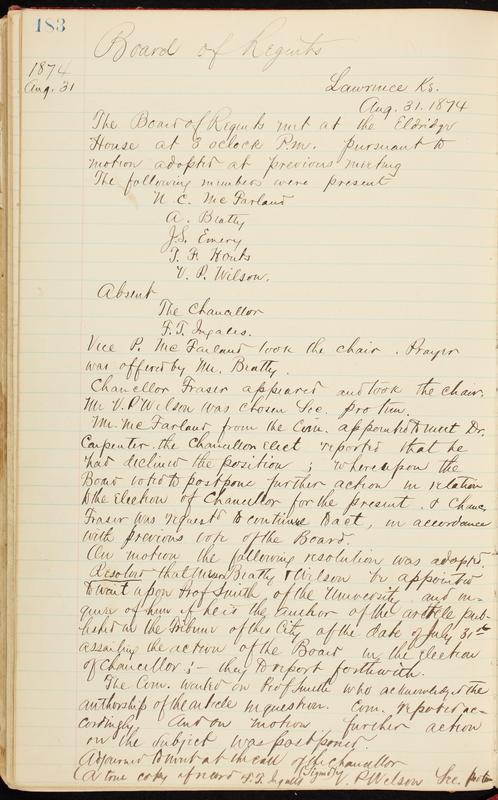 183
Board of Regents
1874
Aug. 31
Lawrence Ks.
Aug. 31. 1874
The Board of Regents met at the Eldridge
House at 3 oclock P.m. pursuant to
motion adopted at previous meeting
The following members were present
N. C. McFarland
A. Beatty
J.S. Emery
T. F. Houts
V. P. Wilson.
Absent
The Chancellor
F. T. Ingalls.
Vice P. McFarland took the chair. Prayer
was offered by Mr. Beatty.
Chancellor Fraser appeared and took the chair.
Mr V. P Wilson was chosen Sec. pro tem.
Mr. McFarland, from the Com. appointed to meet Dr.
Carpenter the Chancellor elect reported that he
had declined the position; whereupon the
Board voted to postpone further action in relation
to the Election of Chancellor for the present. & Chanc.
Fraser was requestd to continue to act, in accordance
with previous vote of the Board.
On motion the following resolution was adopted.
Resolved that Beatty & Wilson be appointed
to wait upon Prof Smith of the University and in-
quire of him if he is the author of the article pub-
lished in the Tribune of this City of the date of July 31st
assailing the action of the Board in the Election
of Chancellor;- they to report forthwith.
The Com. waited on Prof Smith who acknowledged the
authorship of the article in question. Com. reported ac-
cordingly And on motion further action
on the subject was postponed.
Adjourned to meet at the call of the chancellor
(A true copy of record F. T. Ingalls) (Signed) V. P Wilson Sec. pro tem